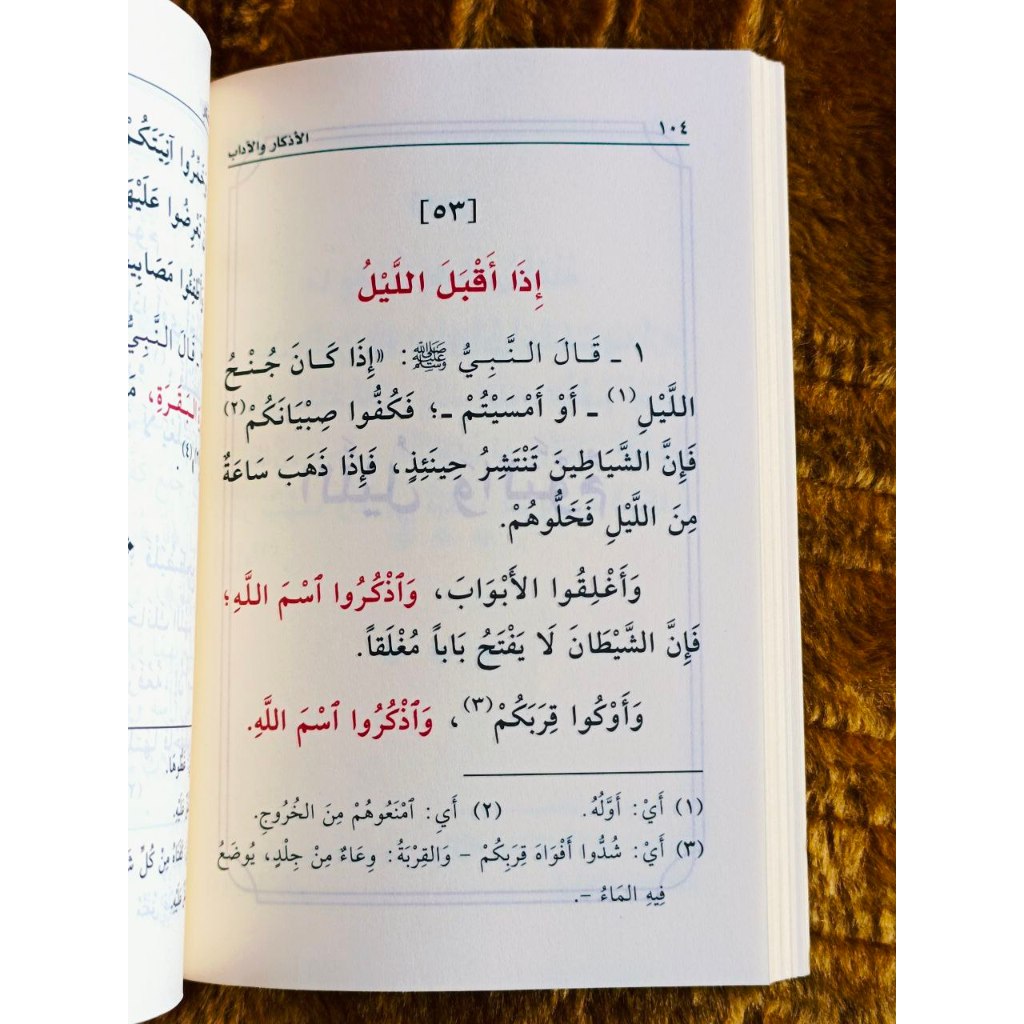 ١٠٤ الأذكار والآداب
[٥٣]
إِذَا أَقْبَلَ اللَّيْلُ
١ ـ قَالَ النَّبِيُّ ﷺ: «إِذَا كَانَ جُنْحُ
اللَّيْلِ(١) ـ أَوْ أَمْسَيْتُمْ ـ؛ فَكُفُّوا صِبْيَانَكُمْ(٢)
فَإِنَّ الشَّيَاطِينَ تَنْتَشِرُ حِينَئِذٍ، فَإِذَا ذَهَبَ سَاعَةٌ
مِنَ اللَّيْلِ فَخَلُّوهُمْ.
وَأَغْلِقُوا الأَبْوَابَ، وَٱذْكُرُوا ٱسْمَ اللَّهِ؛
فَإِنَّ الشَّيْطَانَ لَا يَفْتَحُ بَاباً مُغْلَقاً.
وَأَوْكُوا قِرَبَكُمْ(٣)، وَٱذْكُرُوا ٱسْمَ اللَّهِ.
(١) أَيْ: أَوَّلُهُ. (٢) أَيِ: ٱمْنَعُوهُمْ مِنَ الخُرُوجِ.
(٣) أَيْ: شُدُّوا أَفْوَاهَ قِرَبِكُمْ - وَالقِرْبَةُ: وِعَاءٌ مِنْ جِلْدٍ، يُوضَعُ
فِيهِ المَاءُ -.
آنِيَتَكُمْ
مَصَابِيـ
قَالَ النَّبِيُّ
مِنْ كُلِّ